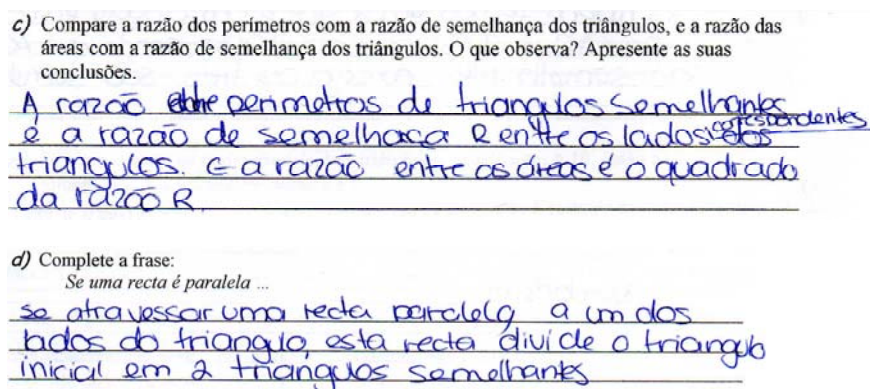 c) Compare a razão dos perímetros com a razão de semelhança dos triângulos, e a razão das
áreas com a razão de semelhança dos triângulos. O que observa? Apresente as suas
conclusões.
A razão entre perimetros de triangulos semelhantes
é a razão de semelhaça R entre os lados correspondentes dos
triangulos. E a razão entre as áreas é o quadrado
da razão R.
d) Complete a frase:
Se uma recta é paralela ...
se atravessar uma recta paralela a um dos
lados do triangulo, esta recta divide o triangulo
inicial em 2 triangulos semelhantes